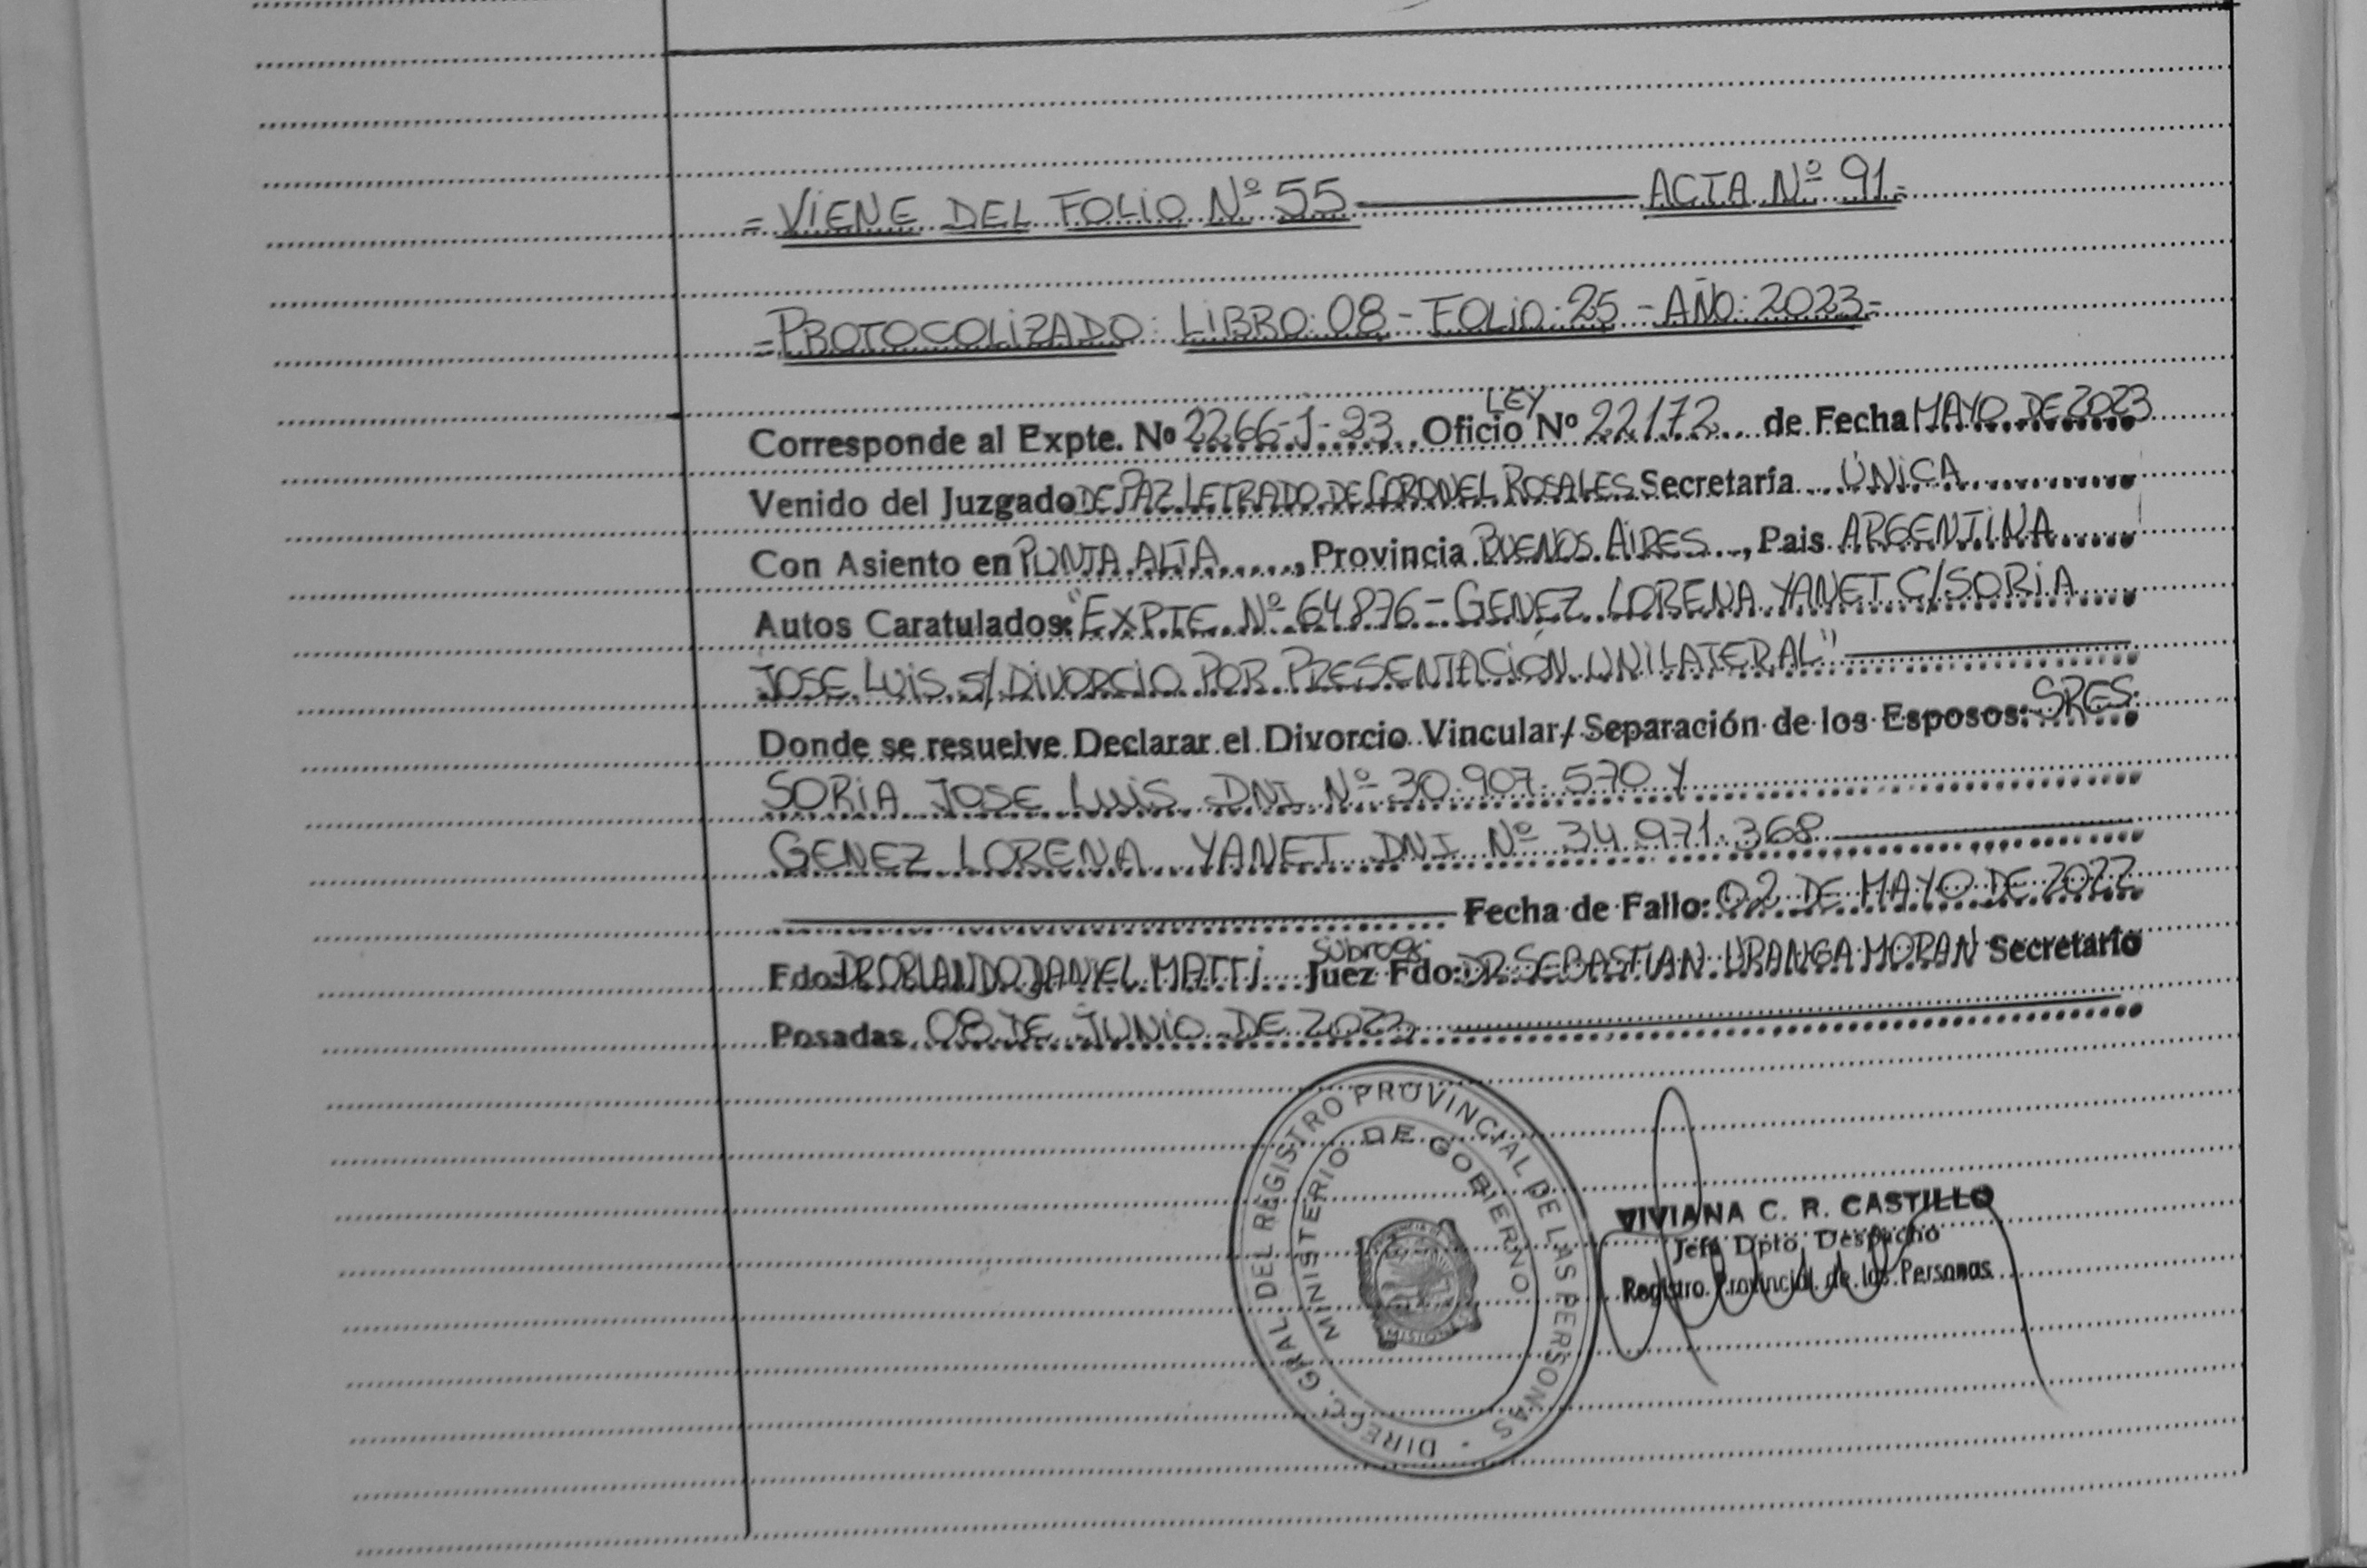 = VIENE DEL FOLIO Nº 55 ——— ACTA Nº 91=
=PROTOCOLIZADO: LIBRO: 08 - FOLIO: 25 - AÑO: 2023=
LEY
Corresponde al Expte. Nº 2266-J-23 Oficio Nº 22172 de Fecha MAYO DE 2023
Venido del Juzgado DE PAZ LETRADO DE CORONEL ROSALES Secretaría ÚNICA
Con Asiento en PUNTA ALTA, Provincia BUENOS AIRES, Pais ARGENTINA
Autos Caratulados: "EXPTE Nº 64876 - GENEZ LORENA YANET C/SORIA
JOSE LUIS S/ DIVORCIO POR PRESENTACIÓN UNILATERAL"
Donde se resuelve Declarar el Divorcio Vincular/Separación de los Esposos: SRES.
SORIA JOSE LUIS DNI Nº 30.907.570 Y
GENEZ LORENA YANET DNI Nº 34.971.368
Fecha de Fallo: 02 DE MAYO DE 2022
Subrog.
Fdo: DR ORLANDO DANIEL MATTI Juez Fdo: DR. SEBASTIAN URANGA MORAN Secretario
Posadas 08 DE JUNIO DE 2023
DIRECC. GRAL DEL REGISTRO PROVINCIAL DE LAS PERSONAS -
MINISTERIO DE GOBIERNO
MISIONES
VIVIANA C. R. CASTILLO
Jefa Dpto. Despacho
Registro Provincial de las Personas